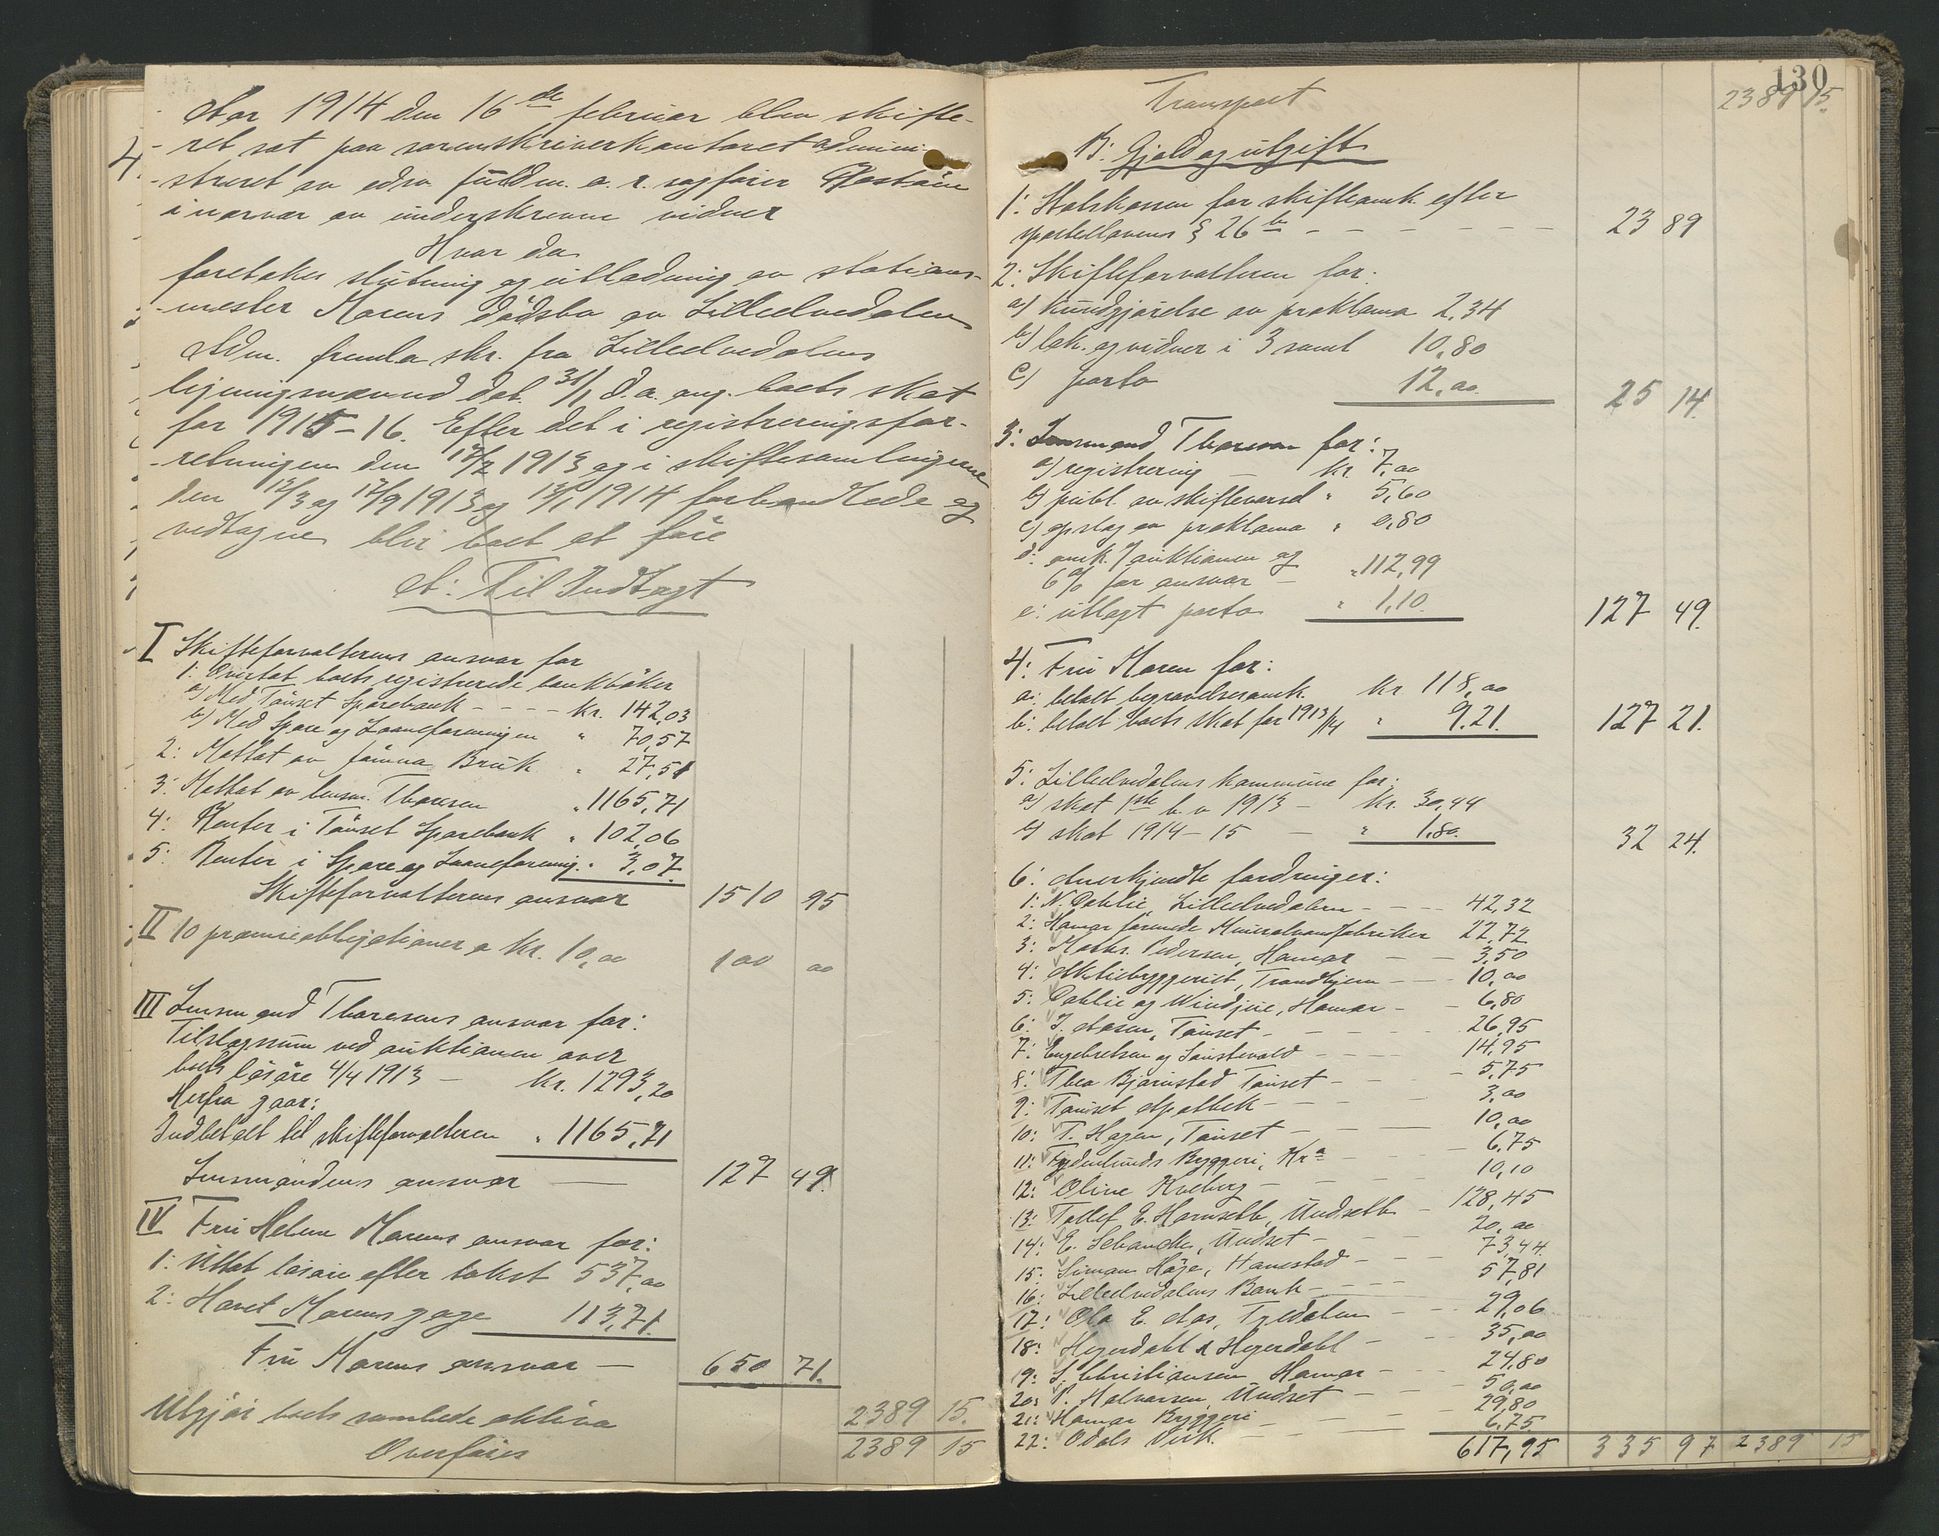 Aar 1914 den 16de februar blev skifte-
ret sat paa sorenskriverkontoret admini-
streret av edsv. fuldm. o. r. sagfører
i nærvær av underskrevne vidner
Hvor da
foretokes slutning og utlodning av stations-
mester Morens dødsbo av Lilleelvedalen
Adm. fremla skr. fra Lilleelvedalens
ligningsnævnd dat. 31/1 d.a. ang. boets skat
for 1915-16. Efter det i registreringsfor-
retningen den 17/2 1913 og i skiftesamlingerne
den 12/3 og 17/9 1913 og 13/1 1914 forhandlede og
vedtagne blir boet at føre
A: Til Indtægt
I Skifteforvalterens ansvar for
1: Overtat boets registrerede bankbøker
a) Med Tønset Sparebank - - - - kr. 142,03
b) Med Spare og Laaneforeningen " 70,57
2: Mottat av Bruk " 27,51
3: Mottat av lensm. Thoresen " 1165,71
4: Renter i Tønset Sparebank " 102,06
5: Renter i Spare og Laaneforening " 3,07.
Skifteforvalterens ansvar 1510 95
II 10 præmieobligationer a kr. 10,00 100 00
III Lensmand Thoresens ansvar for:
Tilslagssum ved auktionen over
boets løsøre 4/4 1913 - kr. 1293,20
Herfra gaar:
Indbetalt til skifteforvalteren " 1165,71
Lensmandens ansvar — 127 49.
IV Fru Helene Morens ansvar for:
1: Uttat løsøre efter takst 537,00
2: Hævet Morens gage 113,71.
Fru Morens ansvar — 650 71.
Utgjør boets samlede aktiva 2389 15.
Overføres 2389 15
130
Transport 2389 15.
B: Gjeld og utgift
1: Statskassen for skifteavk. efter
sportellovens § 26 b - - - - - - 23 89
2: Skifteforvalteren for:
a) kundgjørelse av proklama 2,34
b) lok. og vidner i 3 saml 10,80
c) porto 12,00. 25 14.
3: Lensmand Thoresen for:
a) registrering - kr. 7,00
b) publ. av skiftevarsel " 5,60
c) opslag av proklama " 0,80
d: omk. v/auktionen og
6% for ansvar - " 112,99
e: utlagt porto " 1,10. 127 49.
4: Fru Moren for:
a: betalt begravelsesomk. kr. 118,00
b: betalt boets skat for 1913/14 " 9.21. 127 21.
5: Lilleelvedalens kommune for:
a) skat 1ste h. v 1913 - kr. 30,44
b) skat 1914-15 - " 1,80. 32 24.
6: Anerkjendte fordringer:
1: N. Dahlie, Lilleelvedalen - - - 42,32
2: Hamar forenede Mineralvandfabriker 22,72
3: Pedersen, Hamar - - 3,50
4: Aktiebryggeriet, Trondhjem - - 10,00
5: Dahlie og Hamar - - 6,80
6: J. Aasen, Tønset - - - - 26,95
7: Engebretsen og - - - 14,95
8: Thea Bjørnstad Tønset - - - 5,75
9: Tønset Apothek - - - 3,00
10: T. Hagen, Tønset - - - 10,00
11: Frydenlunds Bryggeri, Kra - - 6,75
12: Oline Kveberg - - - - 10,10
13: Tollef E. Harsetb, Undsetb - 128,45
14: E. Undset - - - 20,00
15: Simon Hanestad - - 73,44.
16: Lilleelvedalens Bank - - - 57,81
17: Ola E. Aas, Tyldalen - - 29,06
18: Hegerdahl & Hegerdahl - - 35,00
19: S. Christiansen Hamar - - 24,80
20: P. Halvorsen, Undset - - 50,00
21: Hamar Bryggeri - - - 29,80
22: Odals - - - 6,75.
617,95 335 97 2389 15